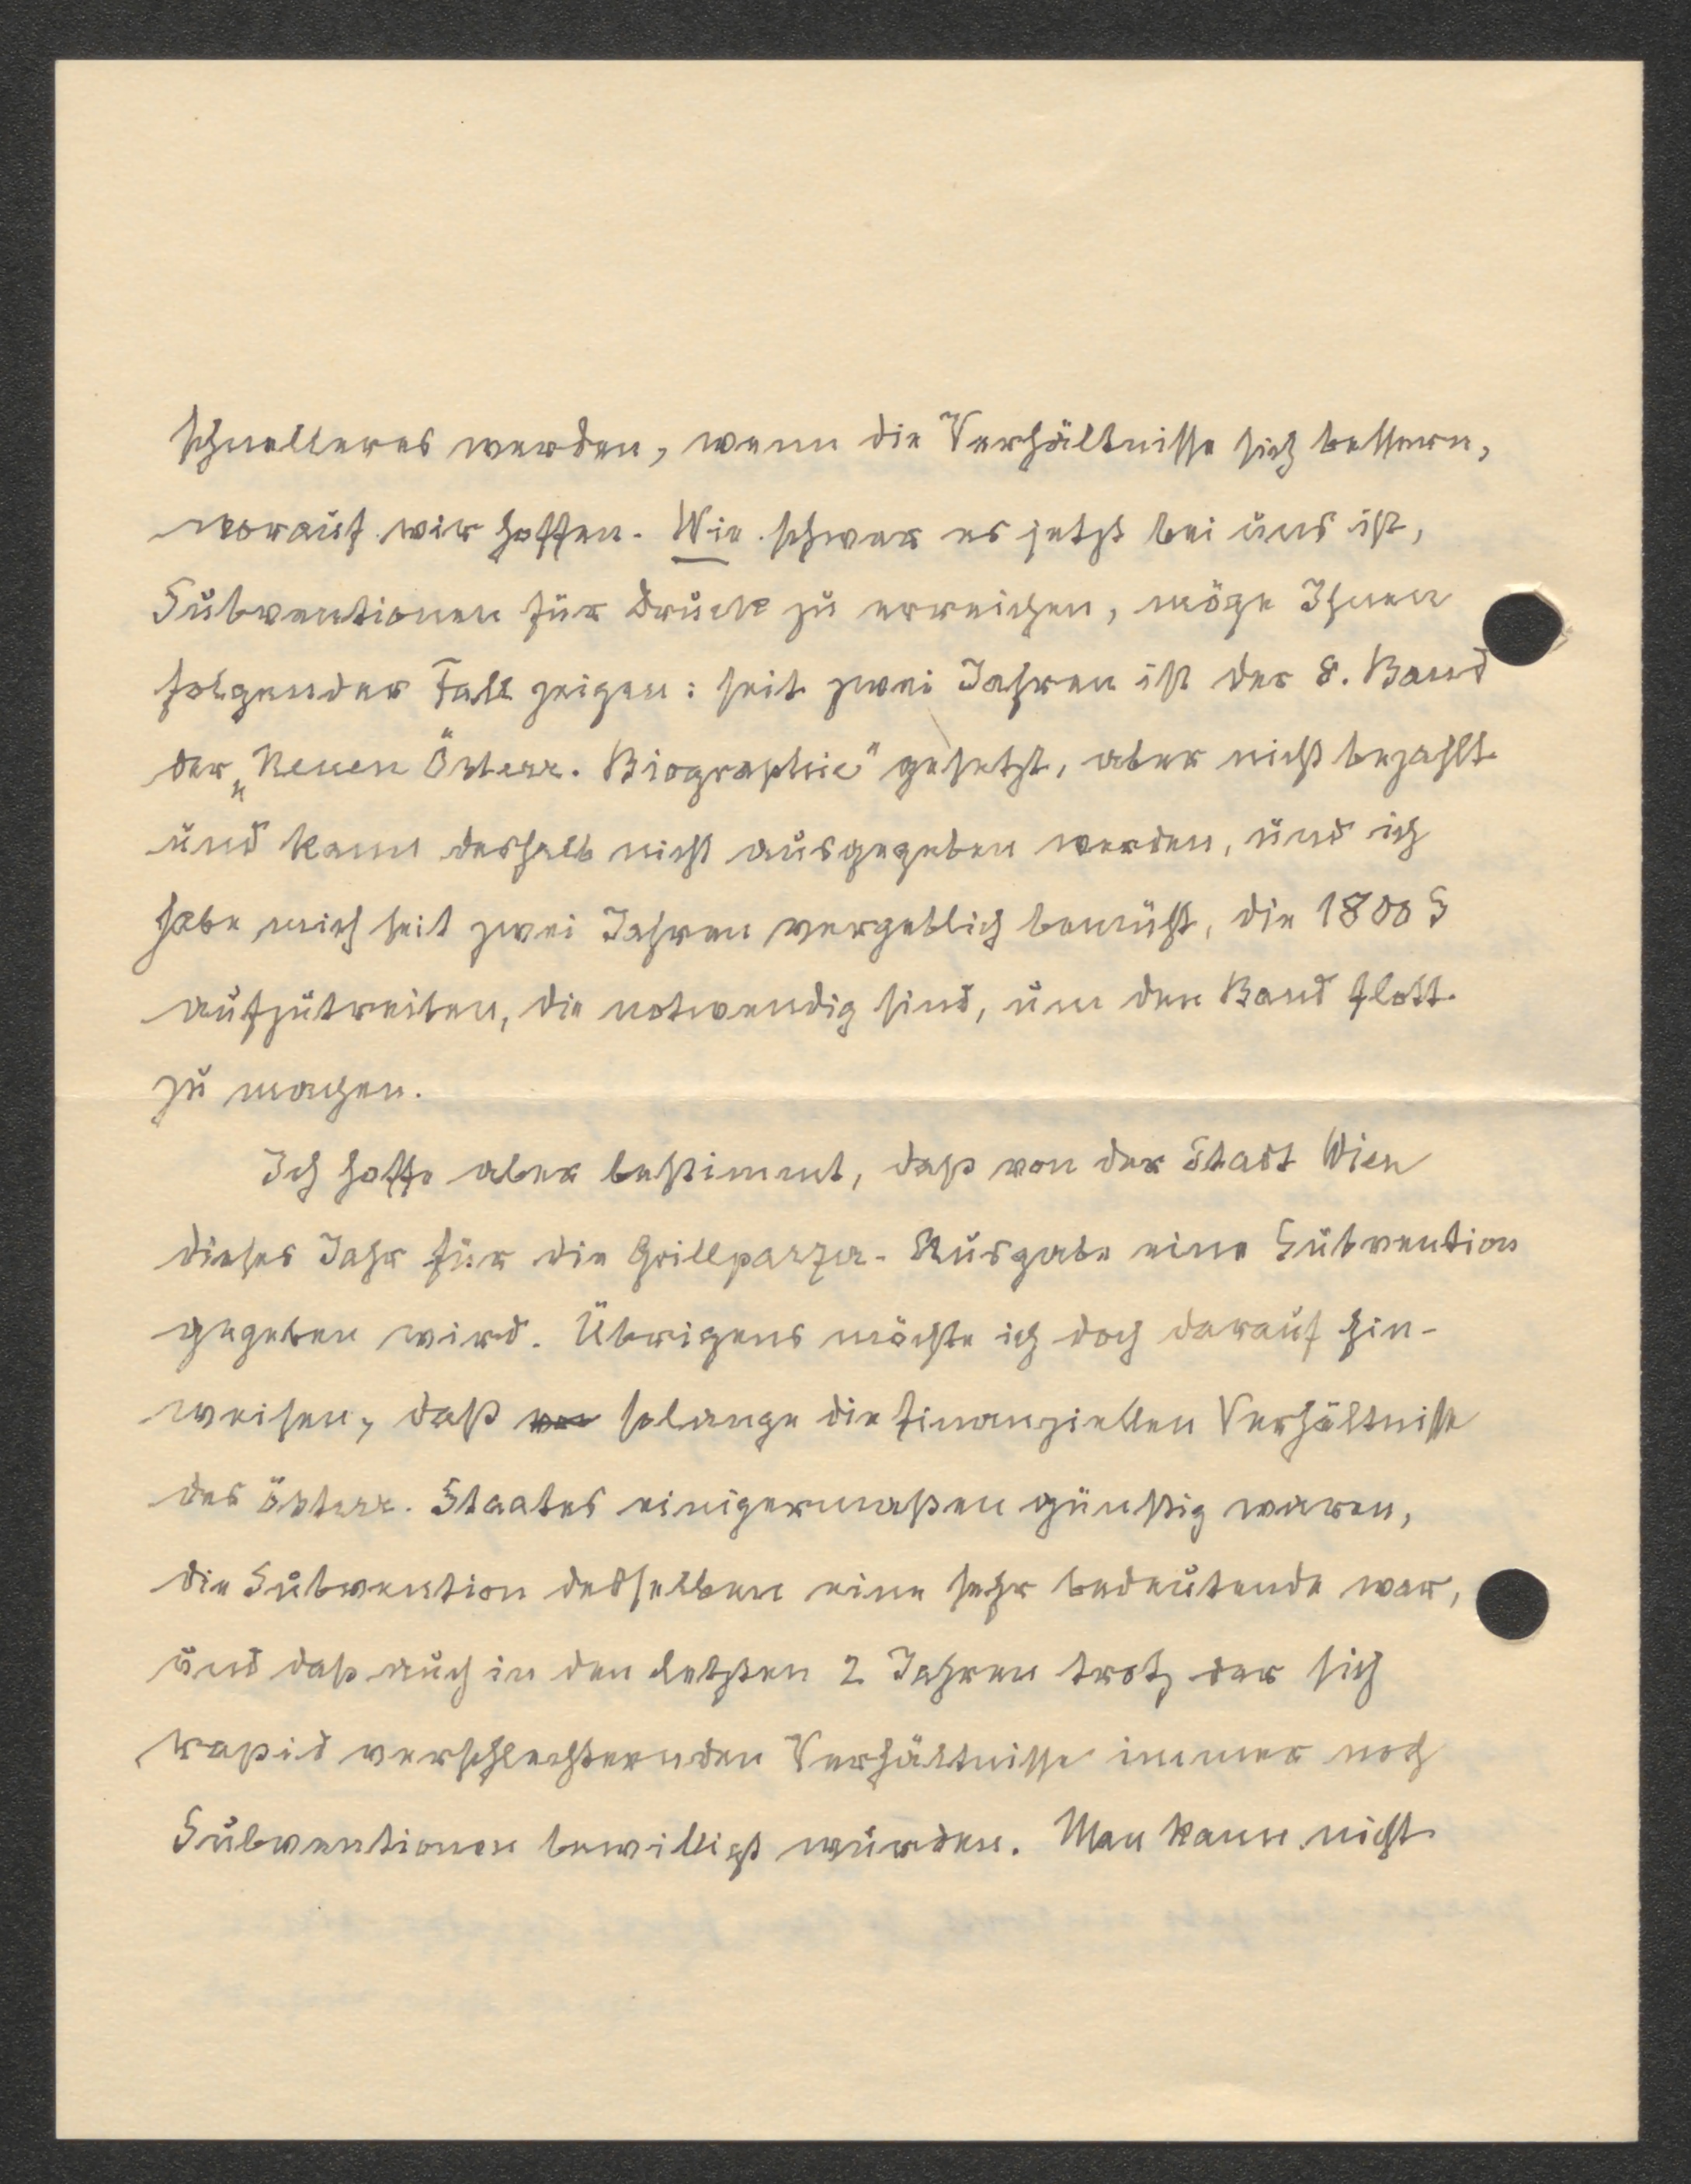 schnelleres werden, wenn die Verhältnisse sich bessern,
worauf wir hoffen. Wie schwer es jetzt bei uns ist,
Subventionen für Druck zu erreichen, möge Ihnen
folgender Fall zeigen: seit zwei Jahren ist der 8. Band
der „Neuen Österr. Biographie" gesetzt, aber nicht bezahlt
und kann deshalb nicht ausgegeben werden, und ich
habe mich seit zwei Jahren vergeblich bemüht, die 1800 S
aufzutreiben, die notwendig sind, um den Band flott
zu machen.
Ich hoffe aber bestimmt, dass von der Stadt Wien
dieses Jahr für die Grillparzer-Ausgabe eine Subvention
gegeben wird. Übrigens möchte ich doch darauf hin-
weisen, daß solange die finanziellen Verhältnisse
des österr. Staates einigermaßen günstig waren,
die Subvention desselben eine sehr bedeutende war,
und dass auch in den letzten 2 Jahren trotz der sich
rapid verschlechternden Verhältnisse immer noch
Subventionen bewilligt wurden. Man kann nicht